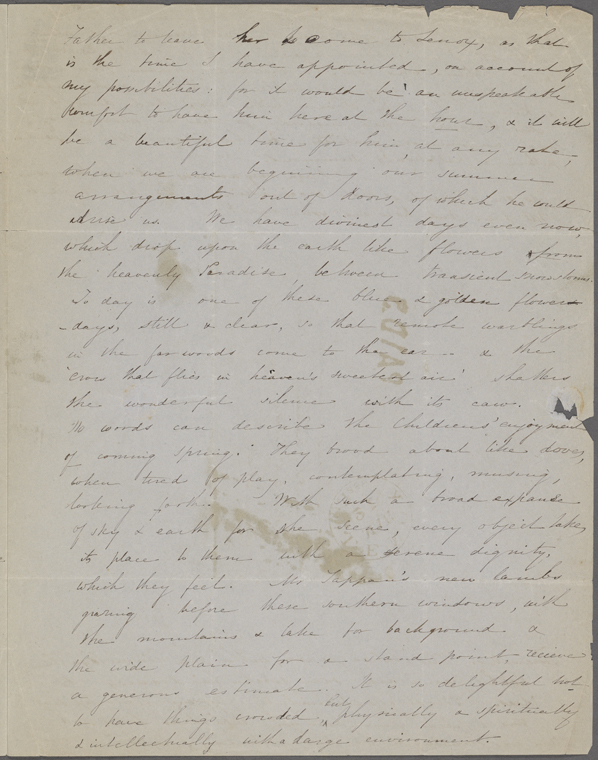 Father to leave her & come to Lenox, as that
is the time I have appointed, on account of
my possibilities: for it would be an unspeakable
comfort to have him here at the hour, & it will
be a beautiful time for him, at any rate,
when we are beginning our summer
arrangements out of doors, of which he could
us. We have divinest days even now,
which drop upon the earth like flowers from
the heavenly Paradise between transient snow storms.
To day is one of these blue & golden flower
-days, still & clear, so that remote warblings
in the far woods come to the ear — & the
'crow that flies in heaven's sweetest air' shatters
the wonderful silence with its caw.
No words can describe the childrens' enjoyment
of "coming Spring." They brood about like doves,
when tired of play, contemplating, musing,
looking forth. With such a broad expanse
of sky & earth for the scene, every object takes
its place to them with a serene dignity,
which they feel. Mr Tappan's new lambs
grazing before these southern windows, with
the mountains & lake for background &
the wide plain for a stand point, receive
a generous estimate. It is so delightful not
to have things crowded but, physically & spiritually
& intellectually with a large environment.